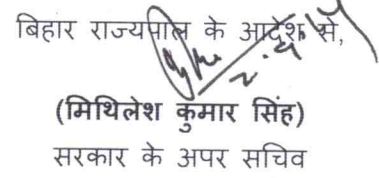 बिहार राज्यपाल के आदेश से,
(मिथिलेश कुमार सिंह)
सरकार के अपर सचिव